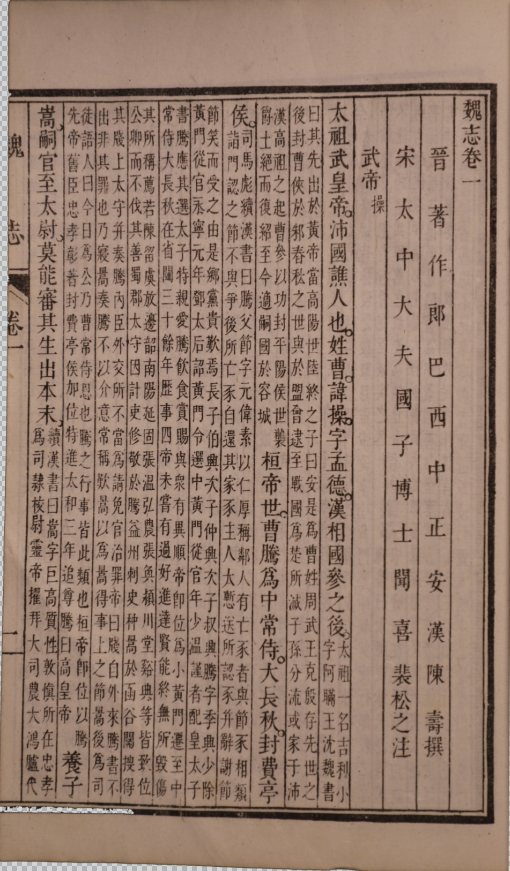 魏志卷一
晉著作郎巴西中正安漢陳壽撰
宋太中大夫國子博士聞喜裴松之注
武帝操
太祖武皇帝。沛國譙人也。姓曹。諱操。字孟德。漢相國參之後。
太祖一名吉利小
字阿瞞王沈魏書
曰其先出於黃帝當高陽世陸終之子曰安是爲曹姓周武王克殷存先世之
後封曹俠於邾春秋之世與於盟會逮至戰國爲楚所滅子孫分流或家于沛
漢高祖之起曹參以功封平陽侯世襲
爵土絕而復紹至今適嗣國於容城
桓帝世。曹騰爲中常侍。大長秋。封費亭
侯。
司馬彪續漢書曰騰父節字元偉素以仁厚稱鄰人有亡豕者與節豕相類
詣門認之節不與爭後所亡豕自還其家豕主人大慙送所認豕幷辭謝節
節笑而受之由是鄉黨貴歎焉長子伯興次子仲興次子叔興騰字季興少除
黃門從官永寧元年鄧太后詔黃門令選中黃門從官年少溫謹者配皇太子
書騰應其選太子特親愛騰飲食賞賜與衆有異順帝卽位爲小黃門遷至中
常侍大長秋在省闥三十餘年歷事四帝未嘗有過好進達賢能終無所毀傷
其所稱薦若陳留虞放邊韶南陽延固張溫弘農張奐潁川堂谿典等皆致位
公卿而不伐其善蜀郡太守因計吏修敬於騰益州刺史种暠於函谷關搜得
其牋上太守幷奏騰內臣外交所不當爲請免官治罪帝曰牋自外來騰書不
出非其罪也乃寢暠奏騰不以介意常稱歎暠以爲暠得事上之節暠後爲司
徒語人曰今日爲公乃曹常侍恩也騰之行事皆此類也桓帝卽位以騰
先帝舊臣忠孝彰著封費亭侯加位特進太和三年追尊騰曰高皇帝
養子
嵩嗣。官至太尉。莫能審其生出本末。
續漢書曰嵩字巨高質性敦愼所在忠孝
爲司隸校尉靈帝擢拜大司農大鴻臚代
魏志 卷一 一